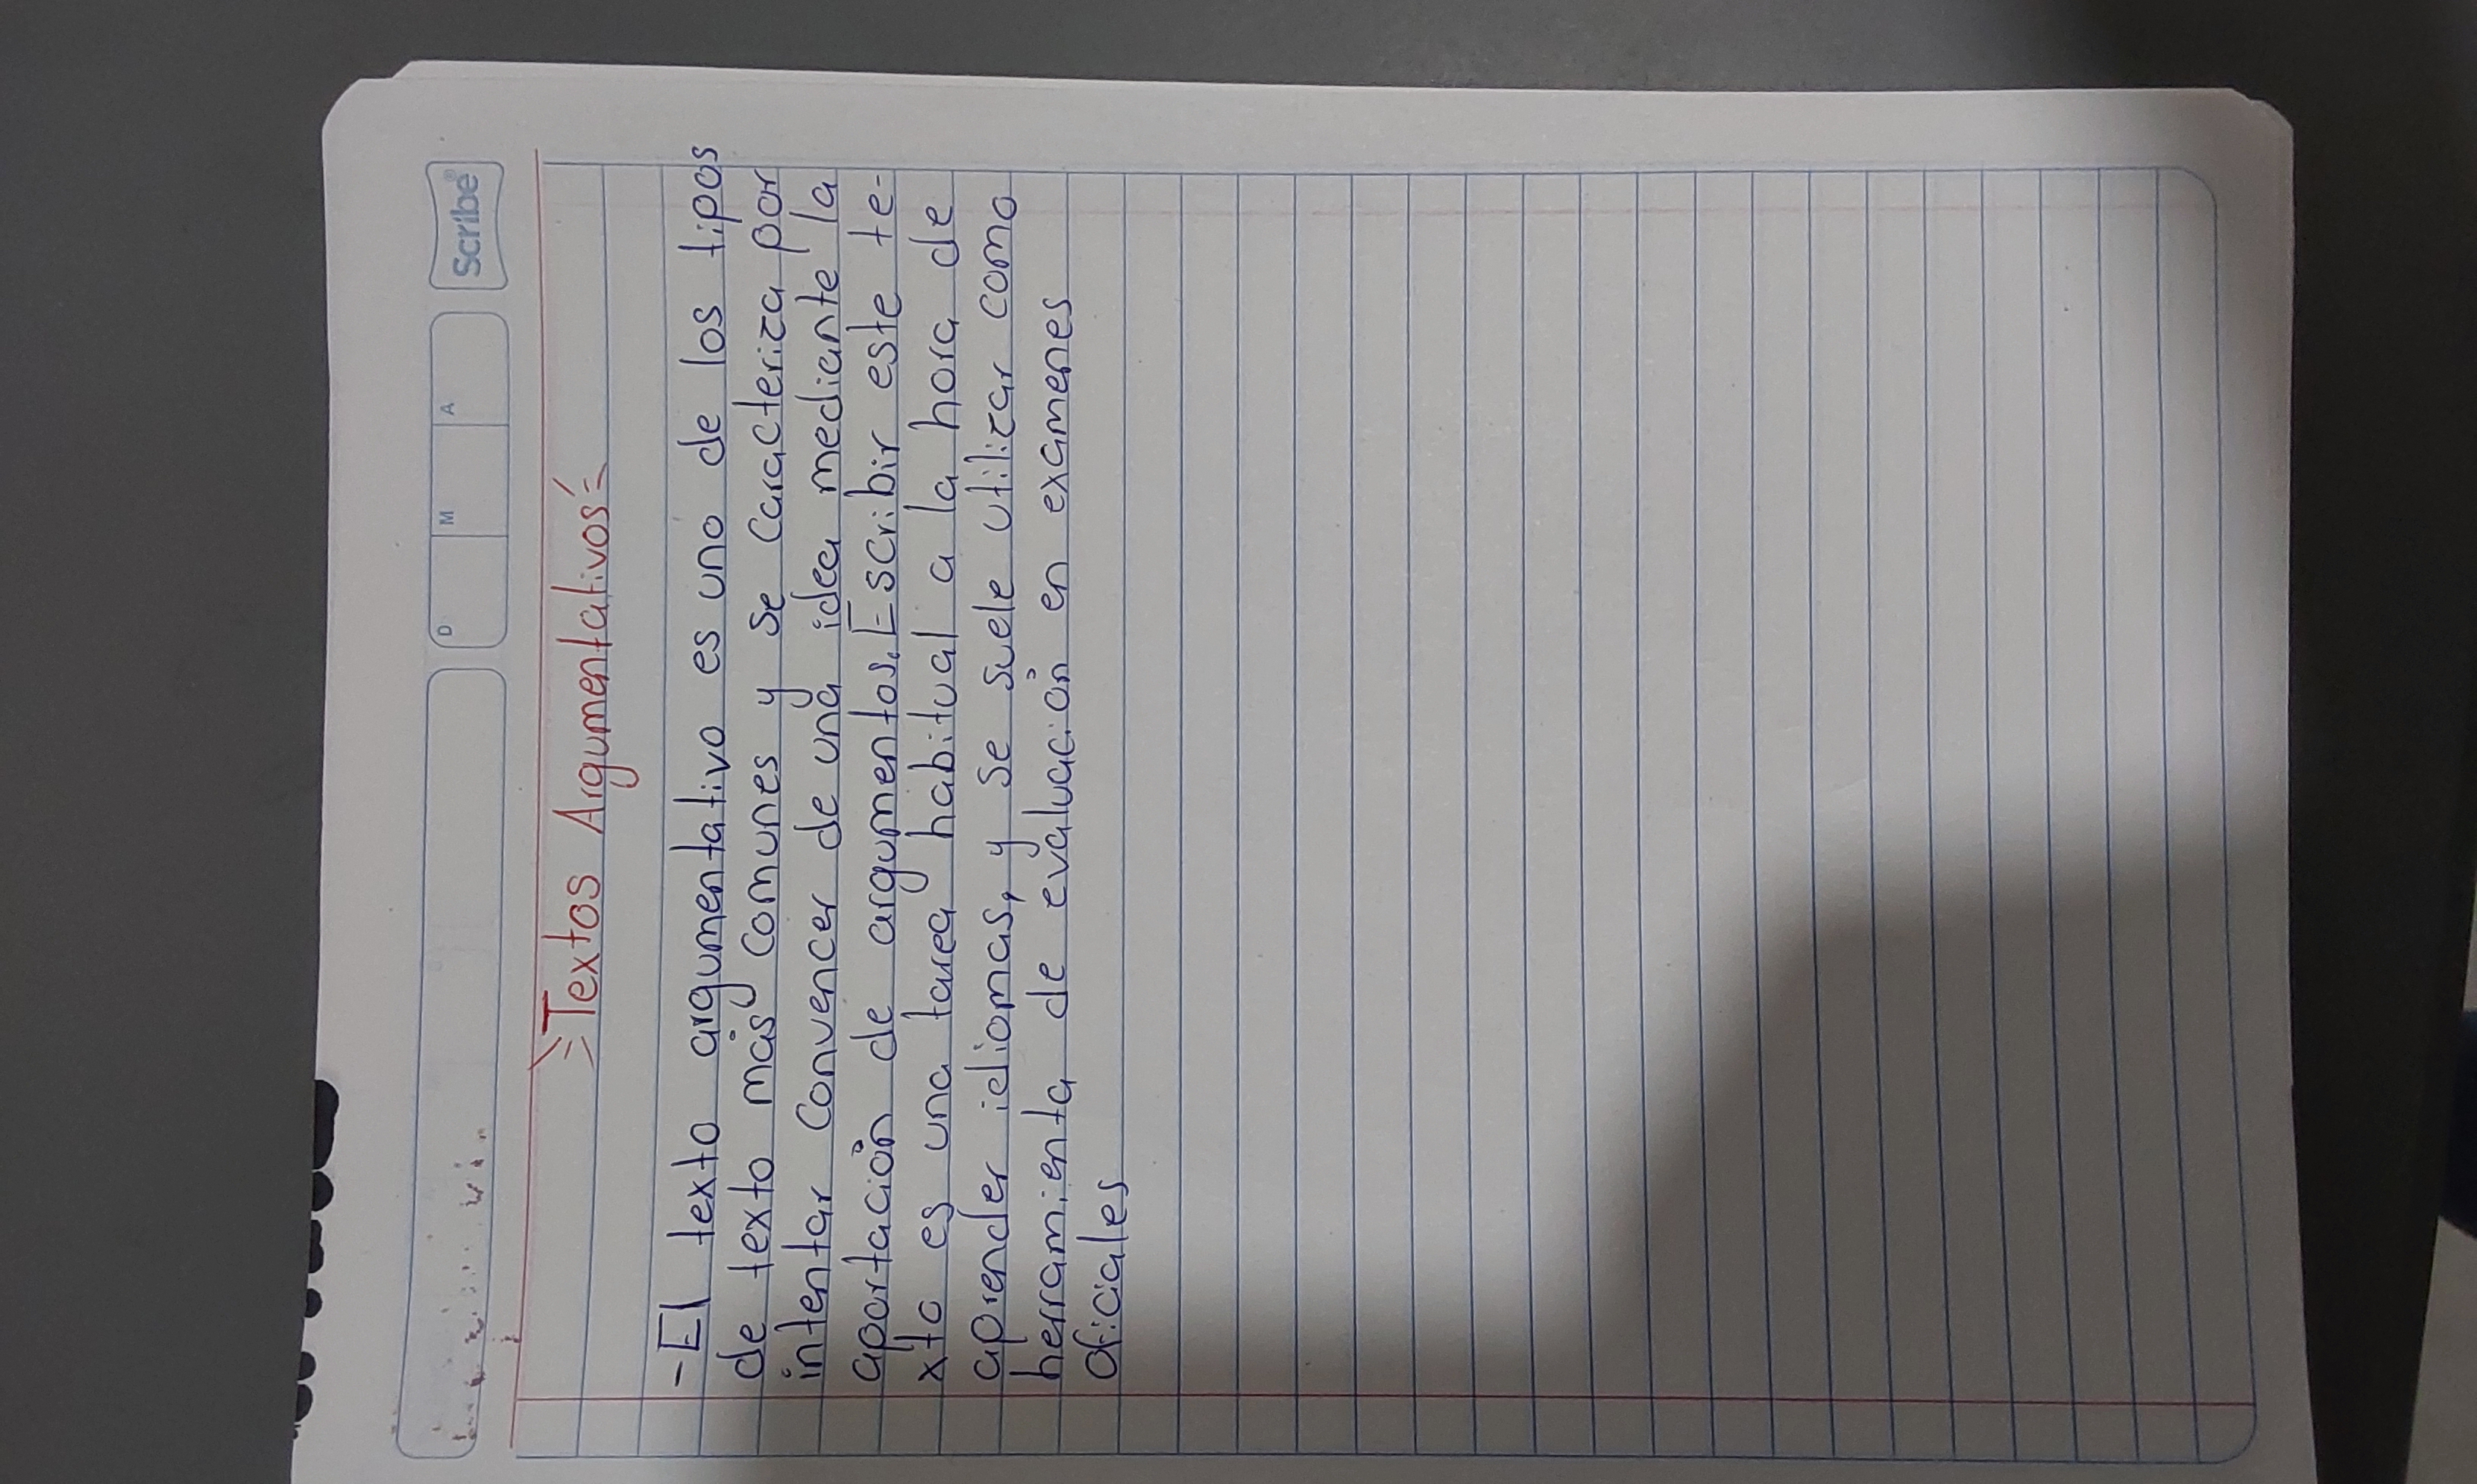 D M A
Scribe®
Textos Argumentativos
-El texto argumentativo es uno de los tipos
de texto más comunes y se caracteriza por
intentar convencer de una idea mediante la
aportación de argumentos. Escribir este te-
xto es una tarea habitual a la hora de
aprender idiomas, y se suele utilizar como
herramienta de evaluación en examenes
oficiales